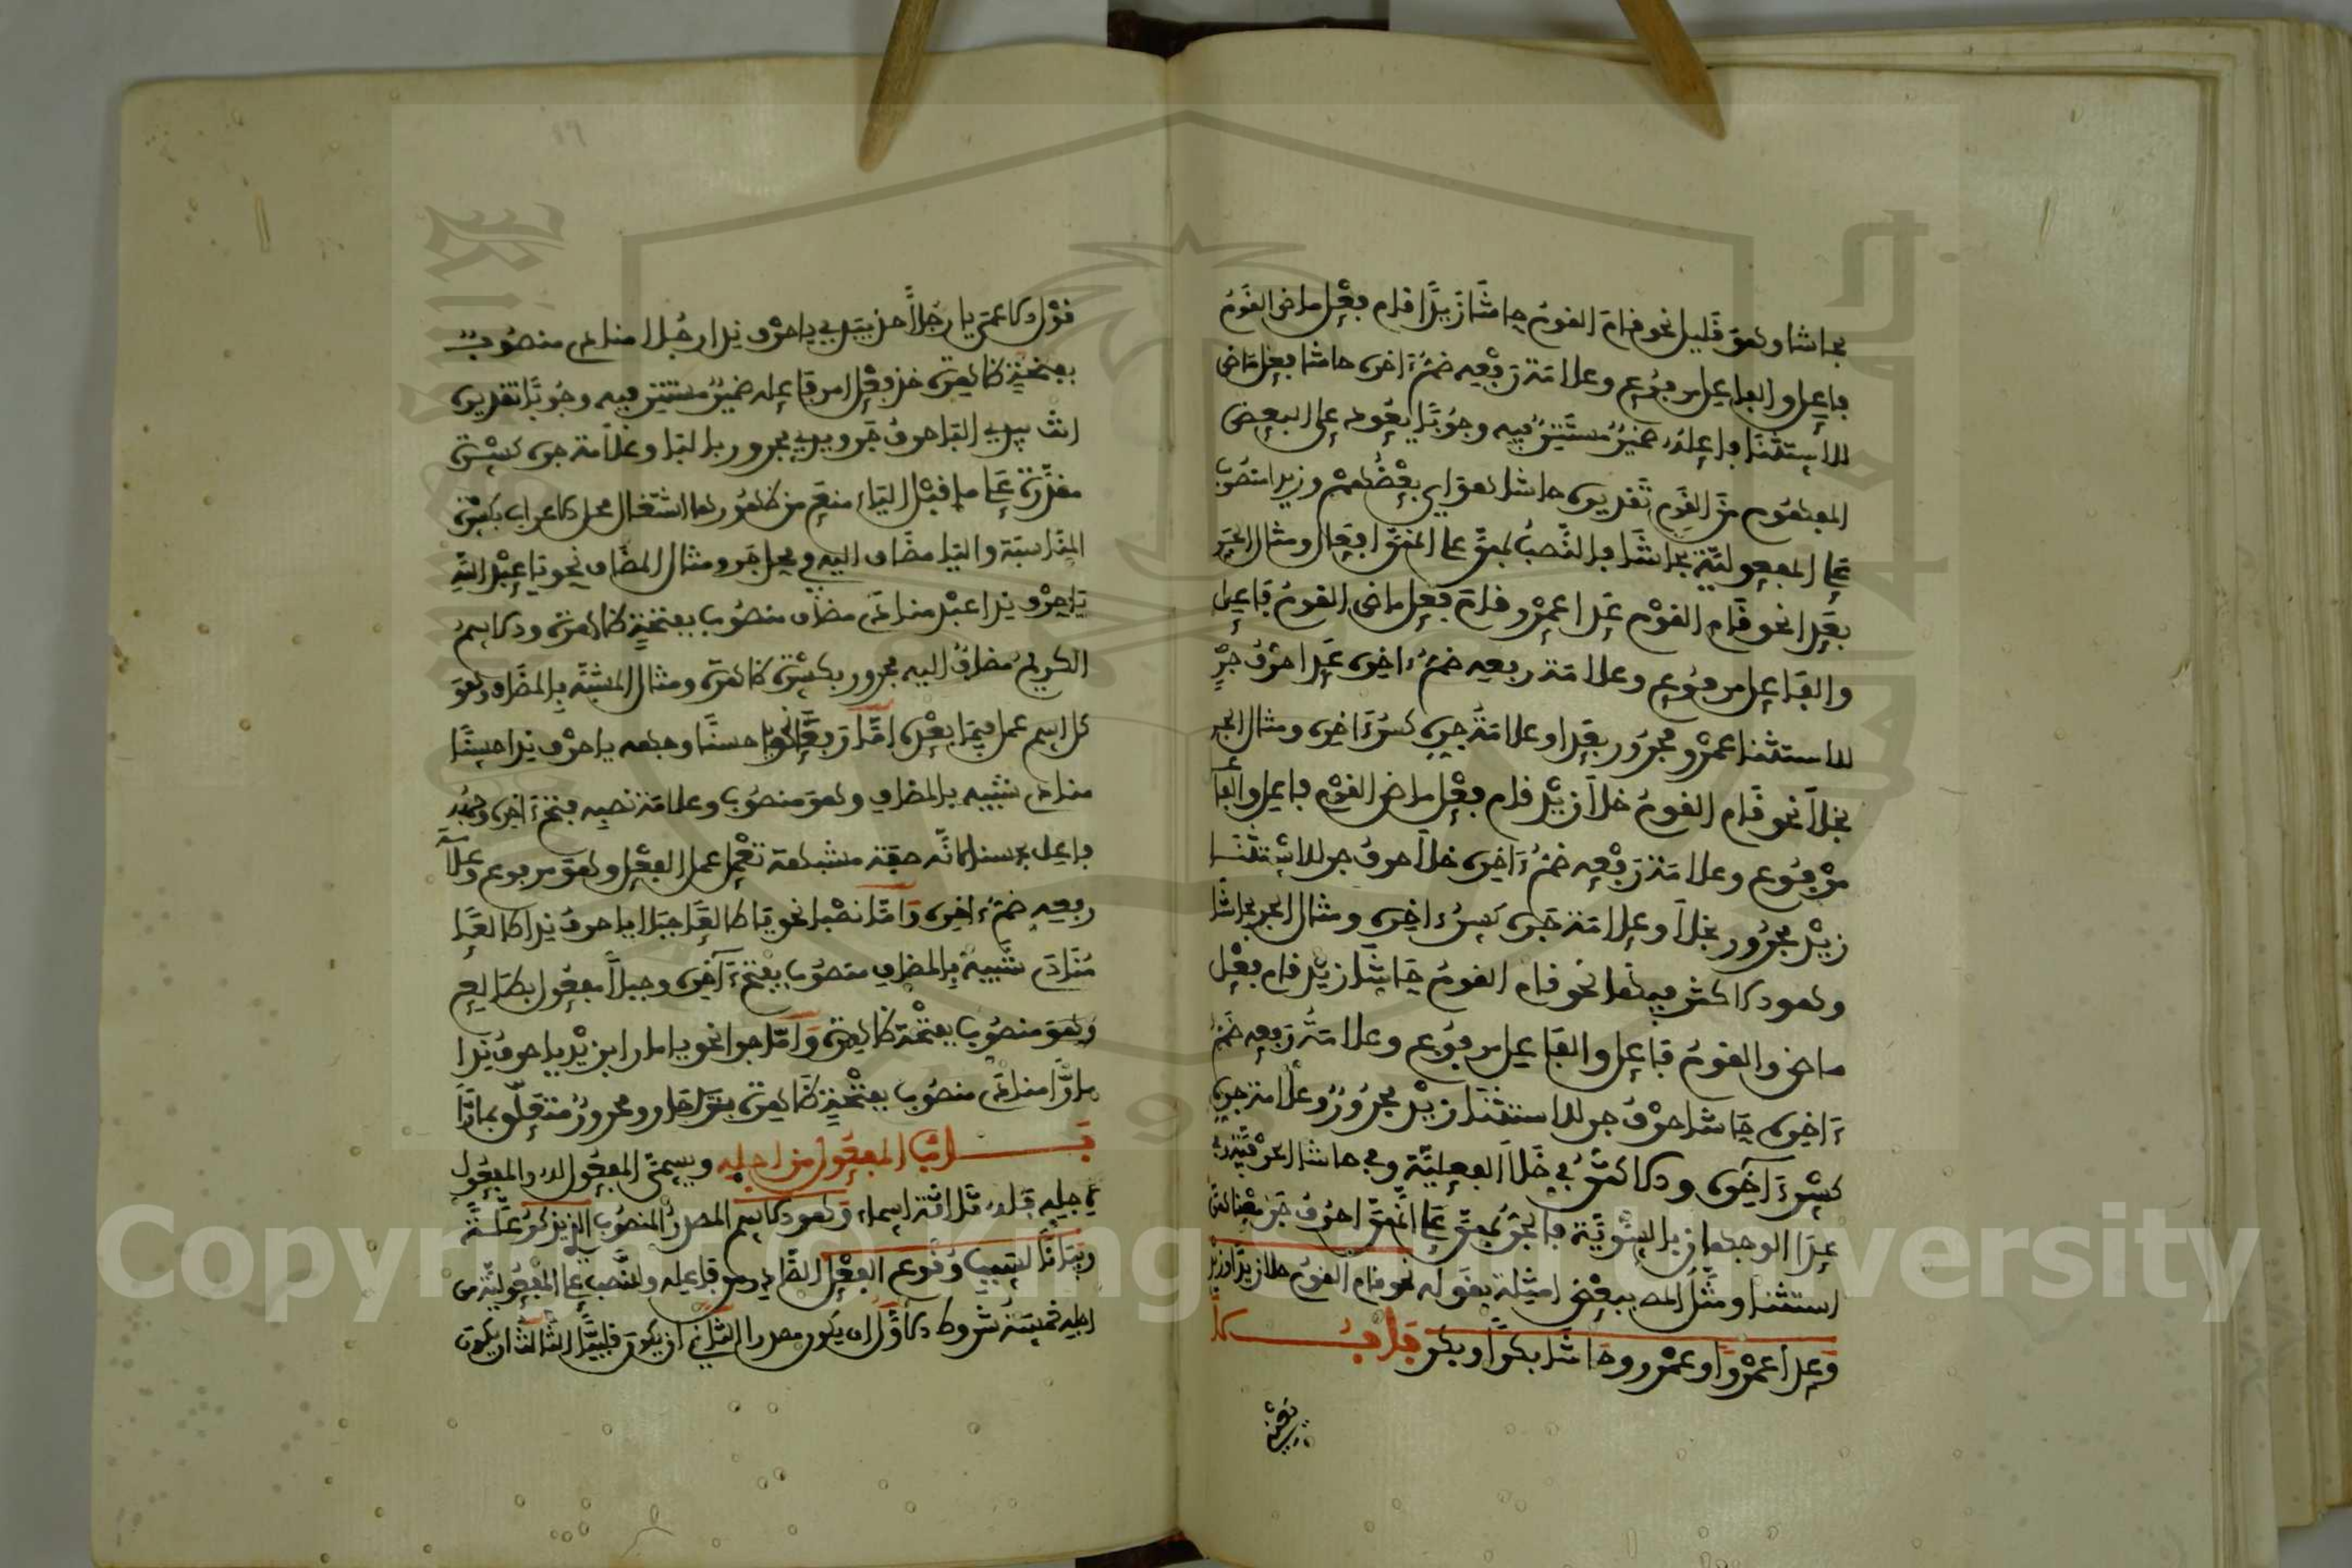 بحاشا وهو قليل نحو قام القومُ حاشَا زيدًا قام فعْل ماض القومُ
فاعِل والفاعِل مرفوع وعلامة رفعِه ضمُّ ءاخره حاشا فعل ماض
للاستثنا فاعلُه ضميرٌ مستَتِرٌ فيه وجوبًا يعُود على البعض
المفهوم من القوم تقديره حاشا هو اي بعضُهم وزيدا منصُوب
على المفعوليّة بحاشَا فالنّصبُ بهِ على انه افعال ومثال الجر
بعَدا نحو قام القوْم عَدا عمْرٍو قام فعل ماض القومُ فاعِل
والفاعِل مرفوع وعلامة رفعه ضمُّ ءاخره عَدا حرْفُ جرٍّ
للاستثنا عمْرٍو مجرُور بعَدا وعلامَةُ جره كسْرُ ءَاخره ومثال الجر
بخلَا نحو قام القومُ خلَا زيْدٍ قام فعْل ماض القوْم فاعل والفا
مرْفوع وعلامَة رفْعِه ضمُّ ءَاخره خلَا حرفُ جر للاستثنَا
زيْدٍ مجرُور بخلَا وعلامَة جَره كسرُ ءاخره ومثال الجر بحاشا
وهو الاكثر فيها نحو قام القومُ حَاشَا زيْد قام فعْل
ماض والقومُ فاعِل والفاعِل مرفُوع وعلامَةُ رَفعِه ضمُّ
ءَاخره حَاشا حرْفُ جر للاستثنَا زيْدٍ مجرُورٌ وعلَامة جره
كسْرُ ءَاخره والاكثرُ في خَلَا الفعليّة وفي حاشا الحرْفيّة وفي
عدَا الوجهان بالسَّوِيّة فالجرُّ على انها احرُف جَر
استثنا ومثَّل المص ببعْض امثِلة بقوله نحو قام القومُ خلا زيدًا وزيدٍ
وَعدا عمْرًا وعمْرٍو وحَاشَا بكرًا وبكرٍ بَابُ لا
قول الاعمى يا رجُلًا خذ بيَدِي يا حرْف ندا رجُلا منادى منصُوبٌ
بفتحَةٍ ظاهرة خذ فعْل امر فاعِله ضميرٌ مستتِر فيه وجُوبًا تقديره
انت بيدي البا حرفُ جَر ويدي مجرور بالبا وعَلَامة جره كسْرة
مقدَّرة على ما قبْل الياء منع من ظهُورها اشتغال محل الاعراب بكسْرة
المنَاسبَة واليا مضَاف اليه في محل جر ومثال المضَاف نحو يا عبْد اللهِ
يَا حرْف ندا عبْد منادى مضاف منصُوب بفتحَةٍ ظاهرة والاسمُ
الكريمُ مضافٌ اليه مجرور بكسْرة ظاهرة ومثال المشبّه بالمضَاف وهو
كل اسم عمل فيمَا بعْده امَّا رفعًا نحو يا حسنًا وجهه يا حرْف ندا حسنًا
منادى شبيه بالمضاف وهو منصُوب وعلامَة نصبِه فتحُ ءَاخره وجهُه
فاعل بحسنا لانَّه صِفة مشبهة تعْمل عمل الفعْل وهو مرفوع وعلَامَة
رفعِه ضمُّ ءاخره وَامَّا نصْبا نحو يَا طالعًا جبَلا يا حرفُ ندا طالعًا
مُنَادَى شبيهٌ بالمضاف منصُوب بفتحِ ءَاخره وجبلًا مفعُول بطالع
وهو منصُوب بفتْحَة ظاهرة وَامّا جرا نحو يا مارا بزيْد يا حرفُ ندا
مارًّا منادًى منصُوب بفتْحَةٍ ظاهرة بزيد جار ومجرورٌ متعَلّق بمارًّا
بَابُ المفعُول من اجله ويسمَّى المفعُول له والمفعُول
لاجله فله ثَلَاثة اسماء وَهو الاسم المصدرُ المنصُوب الذي يذكرُ عِلَّةً
وبيَانًا لسبب وقُوع الفعْل الصَّادر من فاعله والنّصب على المفعُوليّة من
اجله خمسَة شروط الاوَّل ان يكون مصدرا الثاني ان يكون قلبيًّا الثالث ان يكون